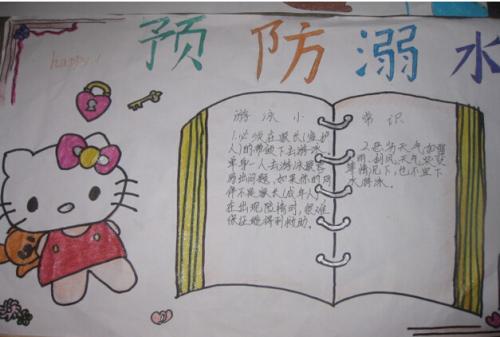 预防溺水
happy!
游泳小常识
1.必须在家长(监护
人)的带领下去游泳.
单单一人去游泳最容
易出问题,如果你的同
伴不是家长(成年人)
在出现险情时,很难
保证能得到救助。
2.恶劣天气,如雷
雨、刮风、天气突变
等情况下,也不宜下
水游泳。